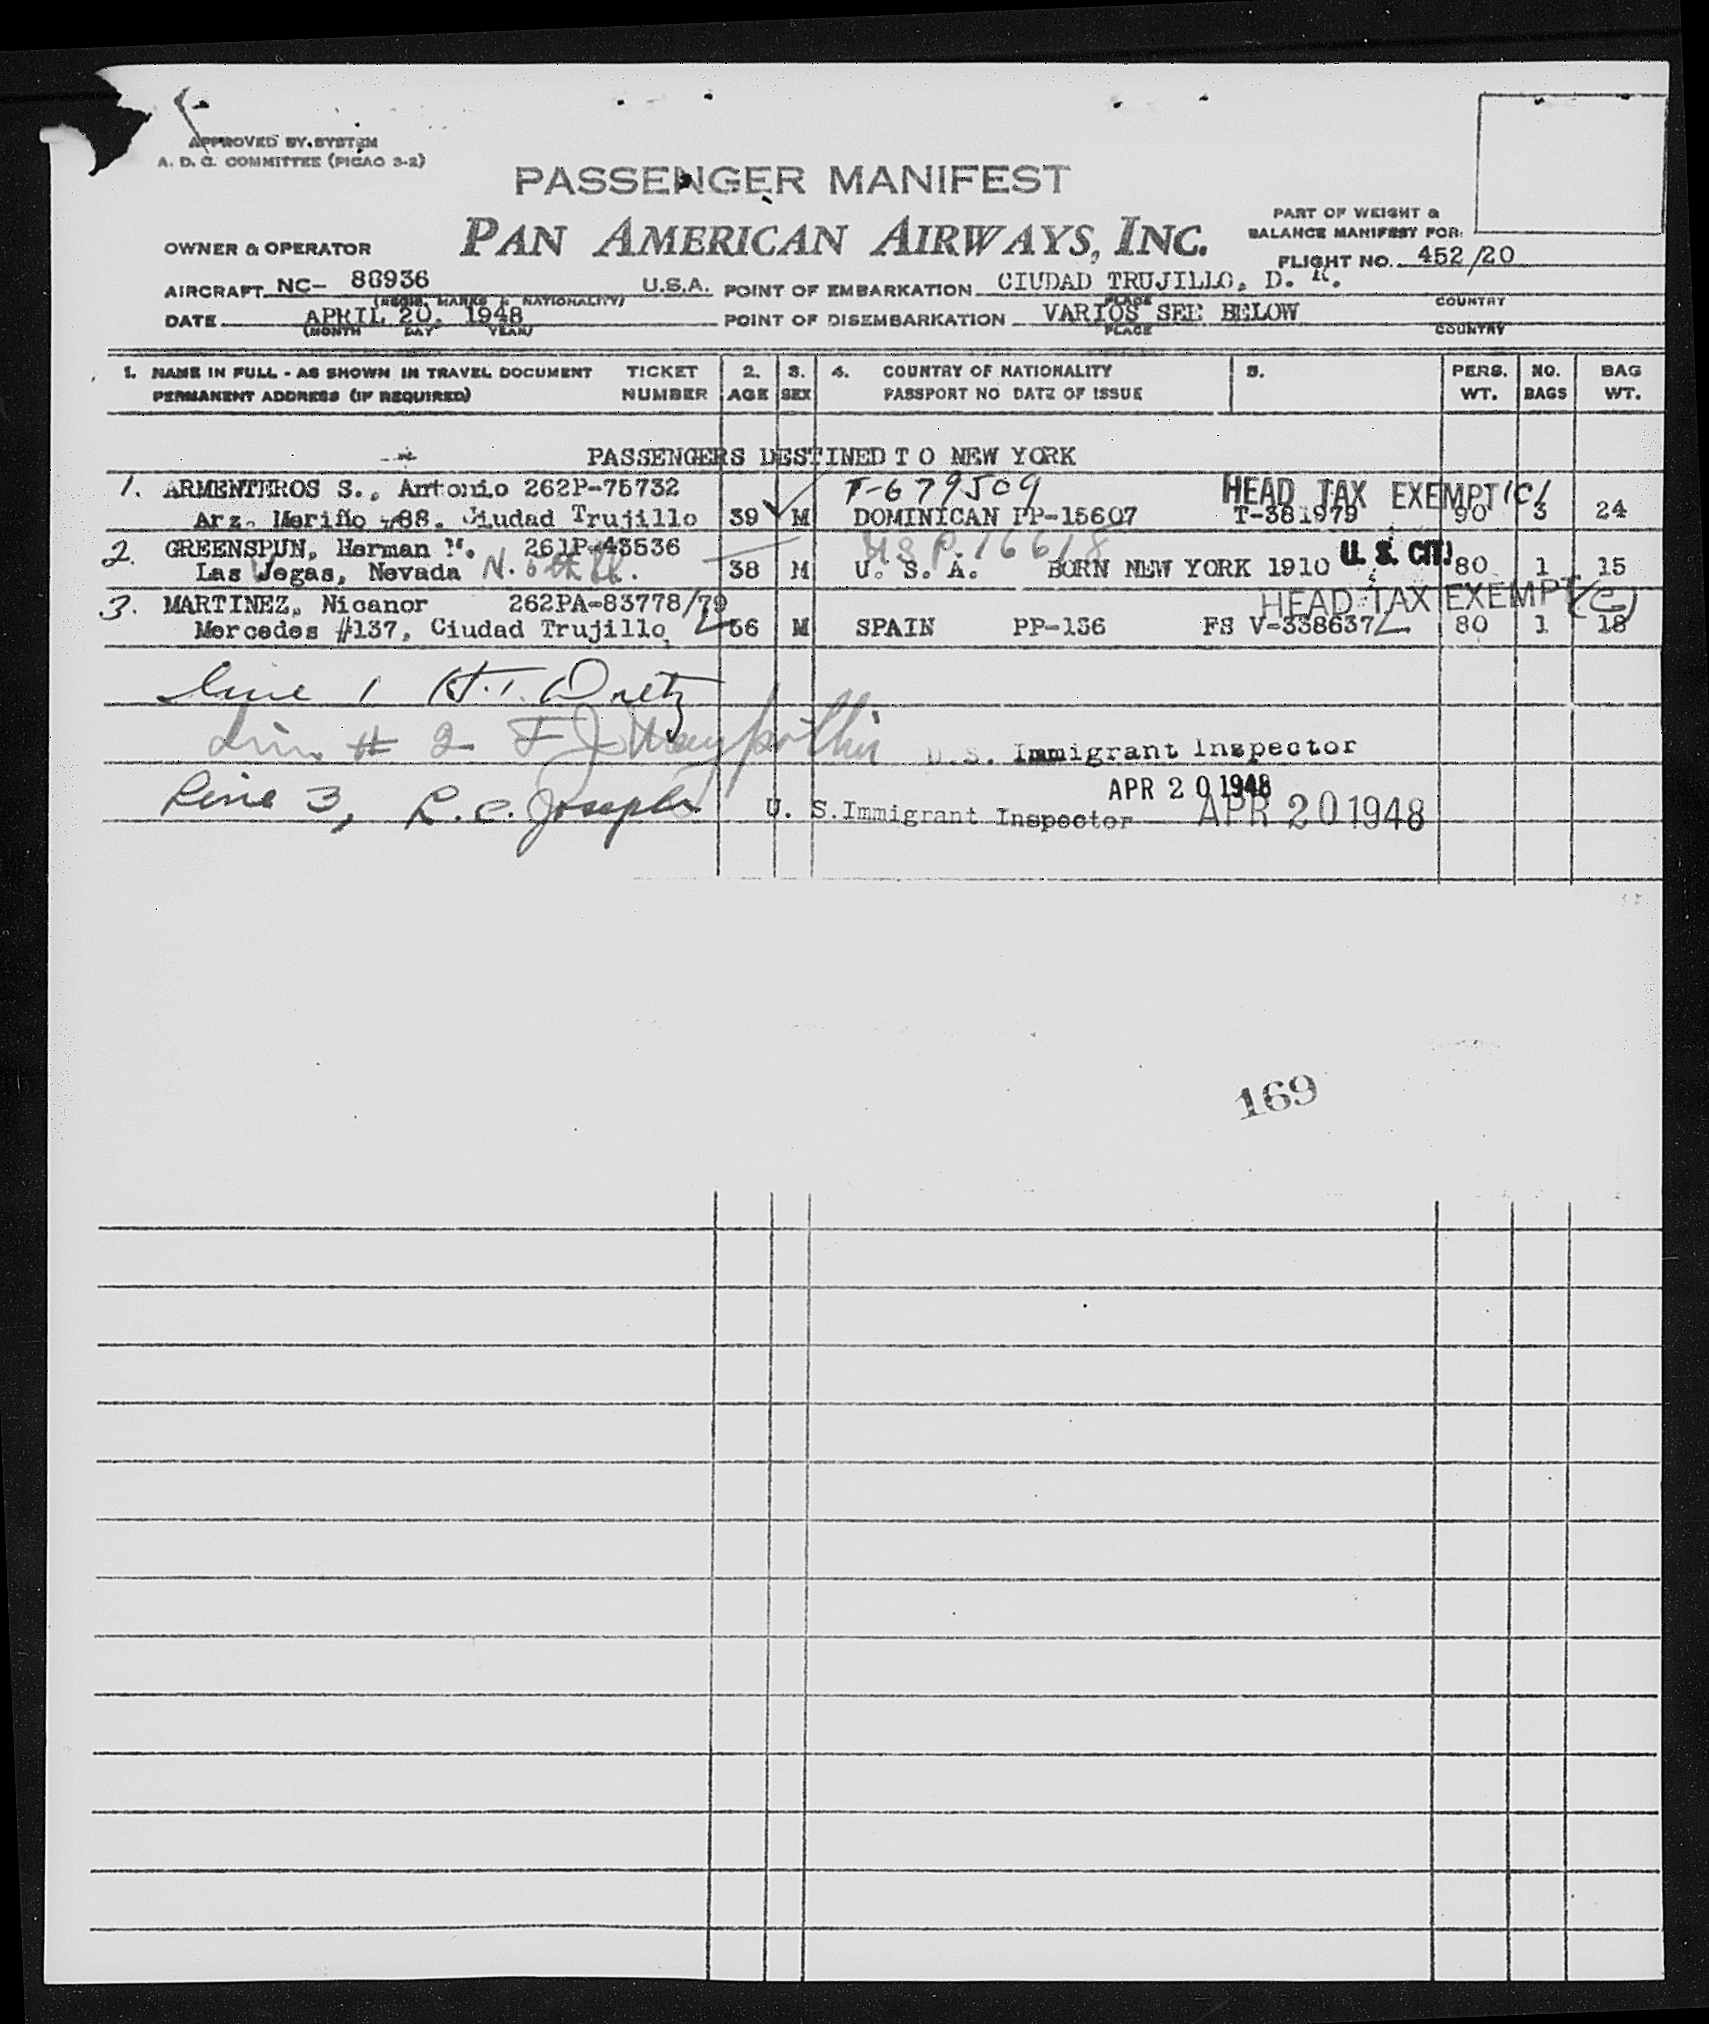 APPROVED BY SYSTEM
A. D. C. COMMITTEE (PICAO 3-2)
PASSENGER MANIFEST
PAN AMERICAN AIRWAYS, INC.
PART OF WEIGHT &
BALANCE MANIFEST FOR:
OWNER & OPERATOR
FLIGHT NO. 452/20
AIRCRAFT NC- 88936 U.S.A. POINT OF EMBARKATION CIUDAD TRUJILLO, D. R.
(REGIS. MARKS & NATIONALITY) PLACE COUNTRY
DATE APRIL 20, 1948 POINT OF DISEMBARKATION VARIOS SEE BELOW
(MONTH DAY YEAR) PLACE COUNTRY
1. NAME IN FULL - AS SHOWN IN TRAVEL DOCUMENT TICKET 2. 3. 4. COUNTRY OF NATIONALITY 5. PERS. NO. BAG
PERMANENT ADDRESS (IF REQUIRED) NUMBER AGE SEX PASSPORT NO DATE OF ISSUE WT. BAGS WT.
PASSENGERS DESTINED T O NEW YORK
1. ARMENTEROS S., Antonio 262P-75732 T-679509 HEAD TAX EXEMPT (C)
Arz. Meriño #88. Ciudad Trujillo 39 M DOMINICAN PP-15607 T-381979 90 3 24
2. GREENSPUN, Herman M. 261P-43536 USP. 16618 U. S. CIT.
Las Vegas, Nevada N. 38 M U. S. A. BORN NEW YORK 1910 80 1 15
3. MARTINEZ, Nicanor 262PA-83778/79 HEAD TAX EXEMPT (C)
Mercedes #137, Ciudad Trujillo 56 M SPAIN PP-136 FS V-338637 80 1 18
Line 1 H.T.
Line # 2 F J U.S. Immigrant Inspector
APR 20 1948
Line 3, R.C. Joseph U. S. Immigrant Inspector APR 20 1948
169